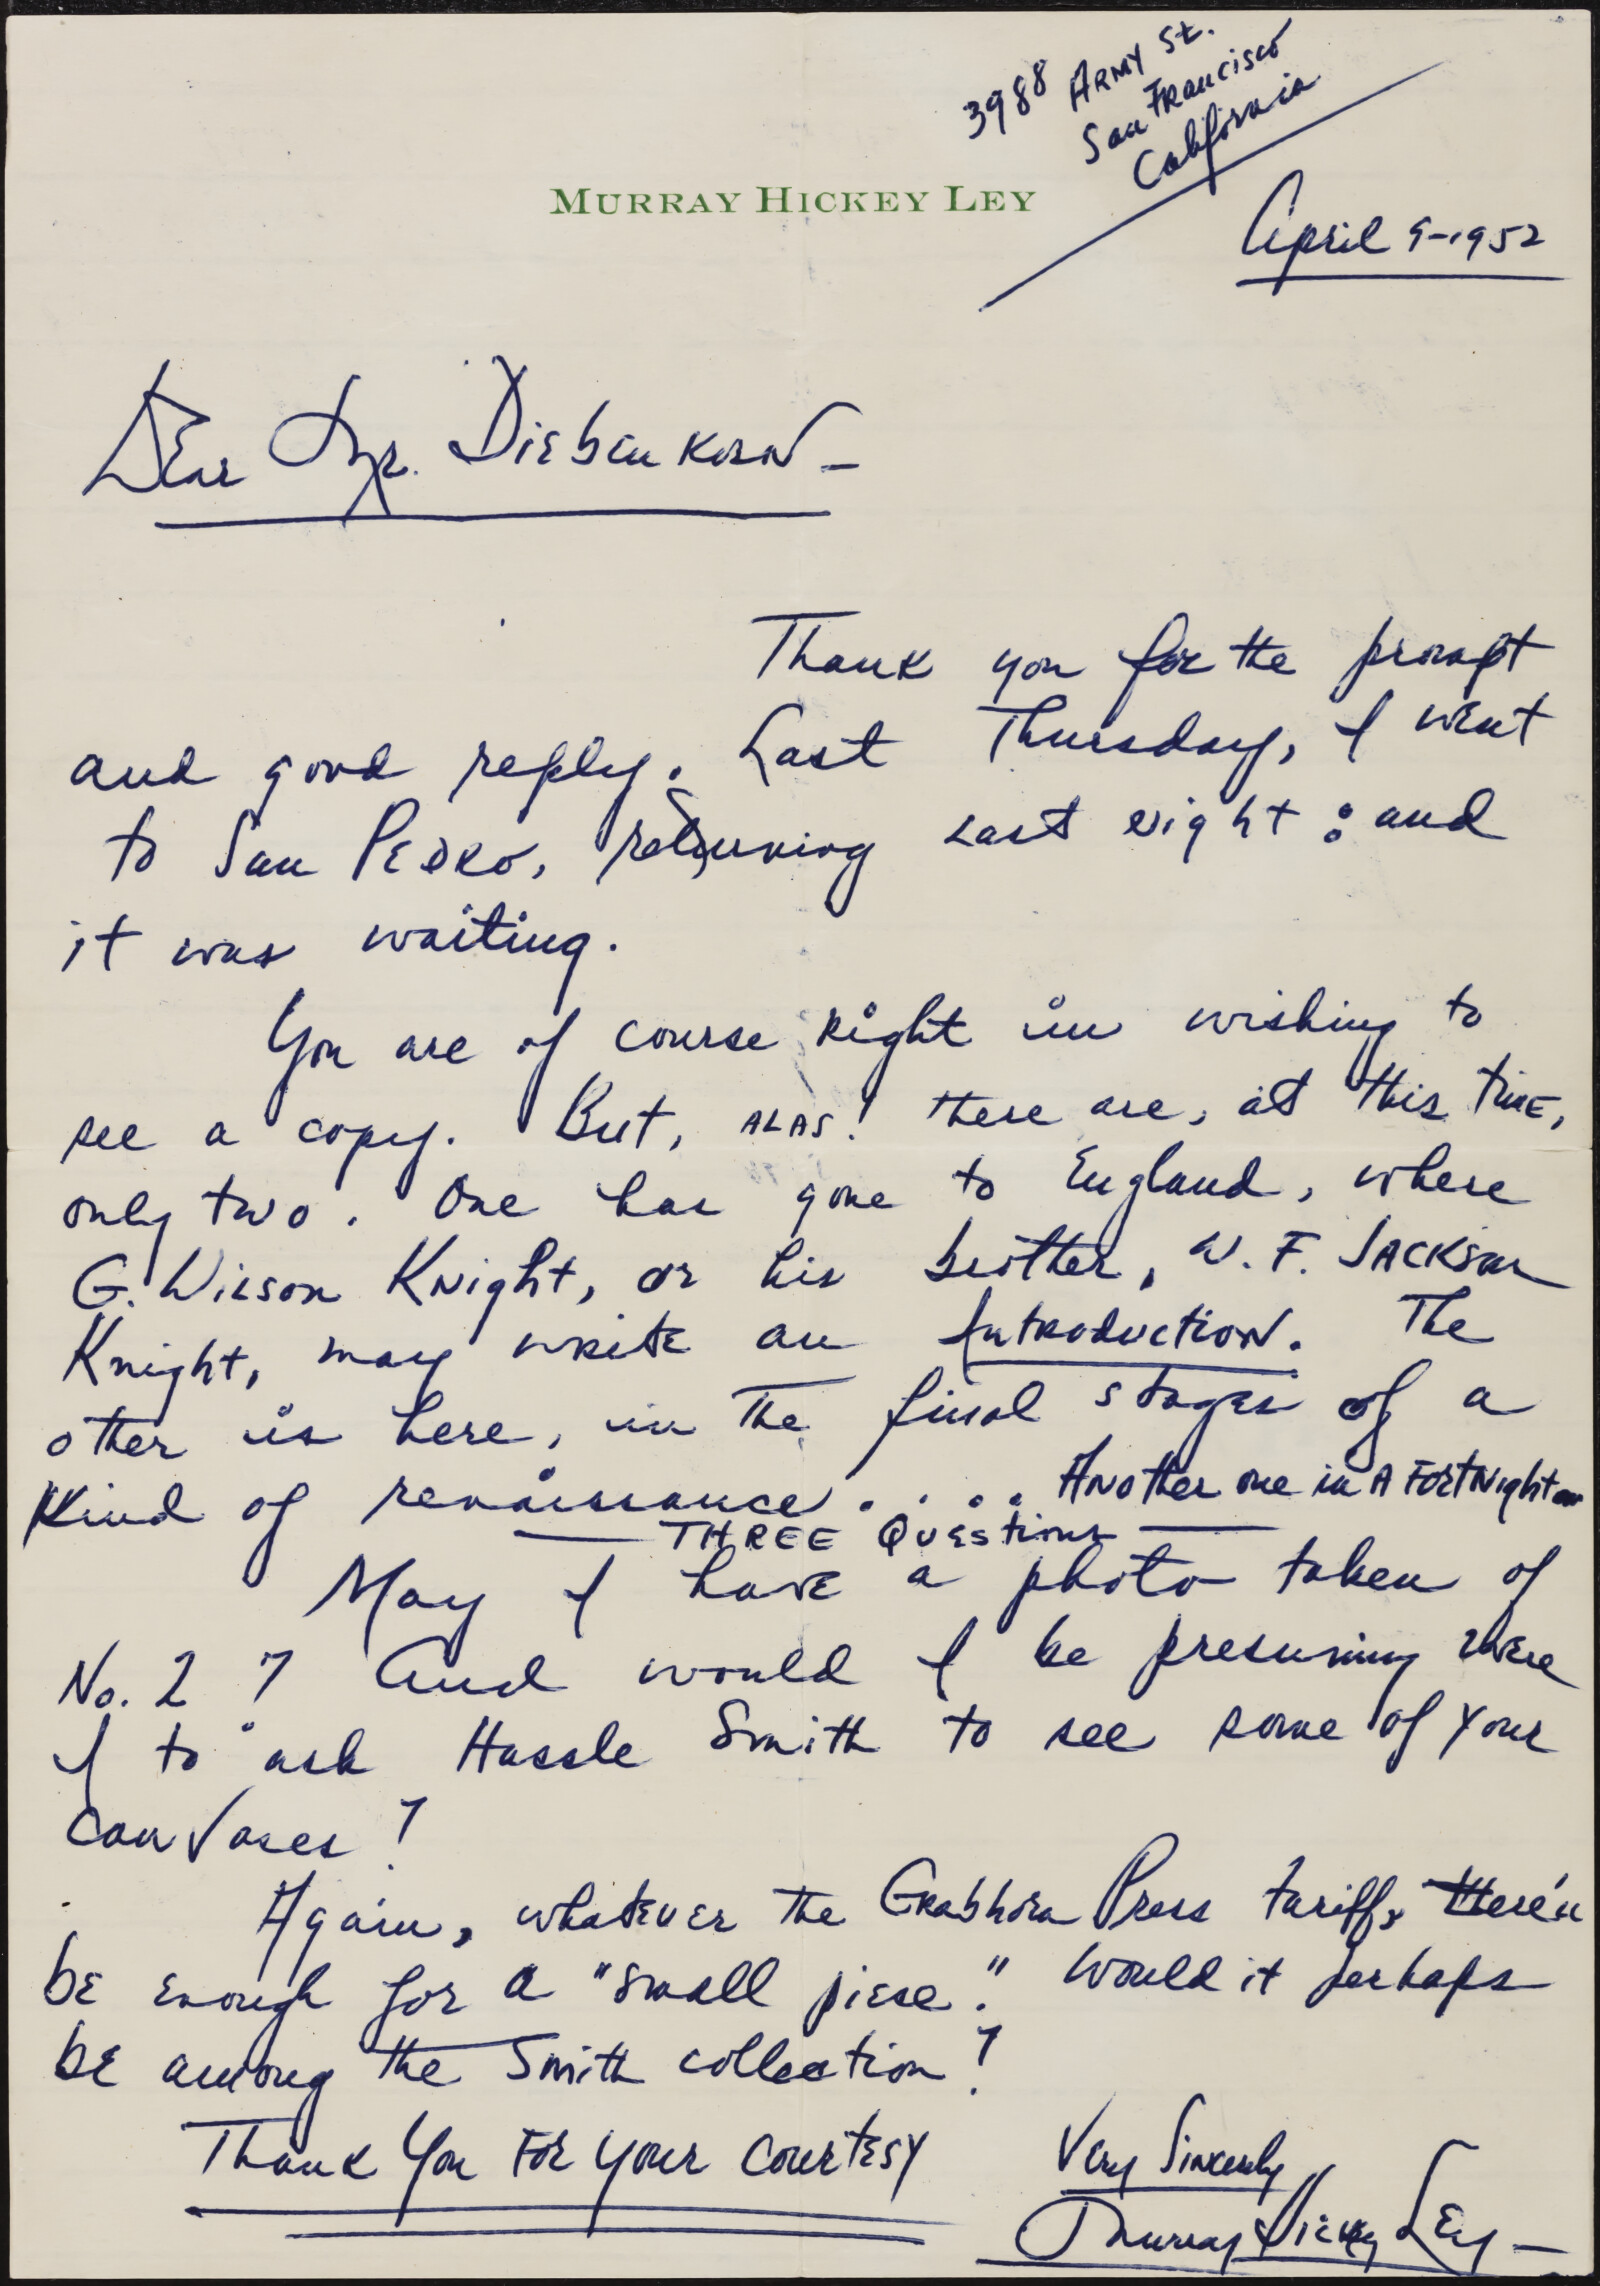 3988 Army St.
San Francisco
California
MURRAY HICKEY LEY
April 9-1952
Dear Mr. Diebenkorn-
Thank you for the prompt
and good reply. Last Thursday, I went
to San Pedro, returning last night: and
it was waiting.
You are of course right in wishing to
see a copy. But, ALAS! there are, at this time,
only two. One has gone to England, where
G. Wilson Knight, or his brother, W. F. Jackson
Knight, may write an Introduction. The
other is here, in the final stages of a
kind of renaissance.... Another one in A Fortnight
THREE Questions
May I have a photo taken of
No. 2? And would I be presuming were
I to ask Hassle Smith to see some of your
canvases?
Again, whatever the Grabhorn Press tariff, there'll
be enough for a "small piece." Would it perhaps
be among the Smith collection?
Thank You For Your Courtesy
Very Sincerely
Murray Hickey Ley-